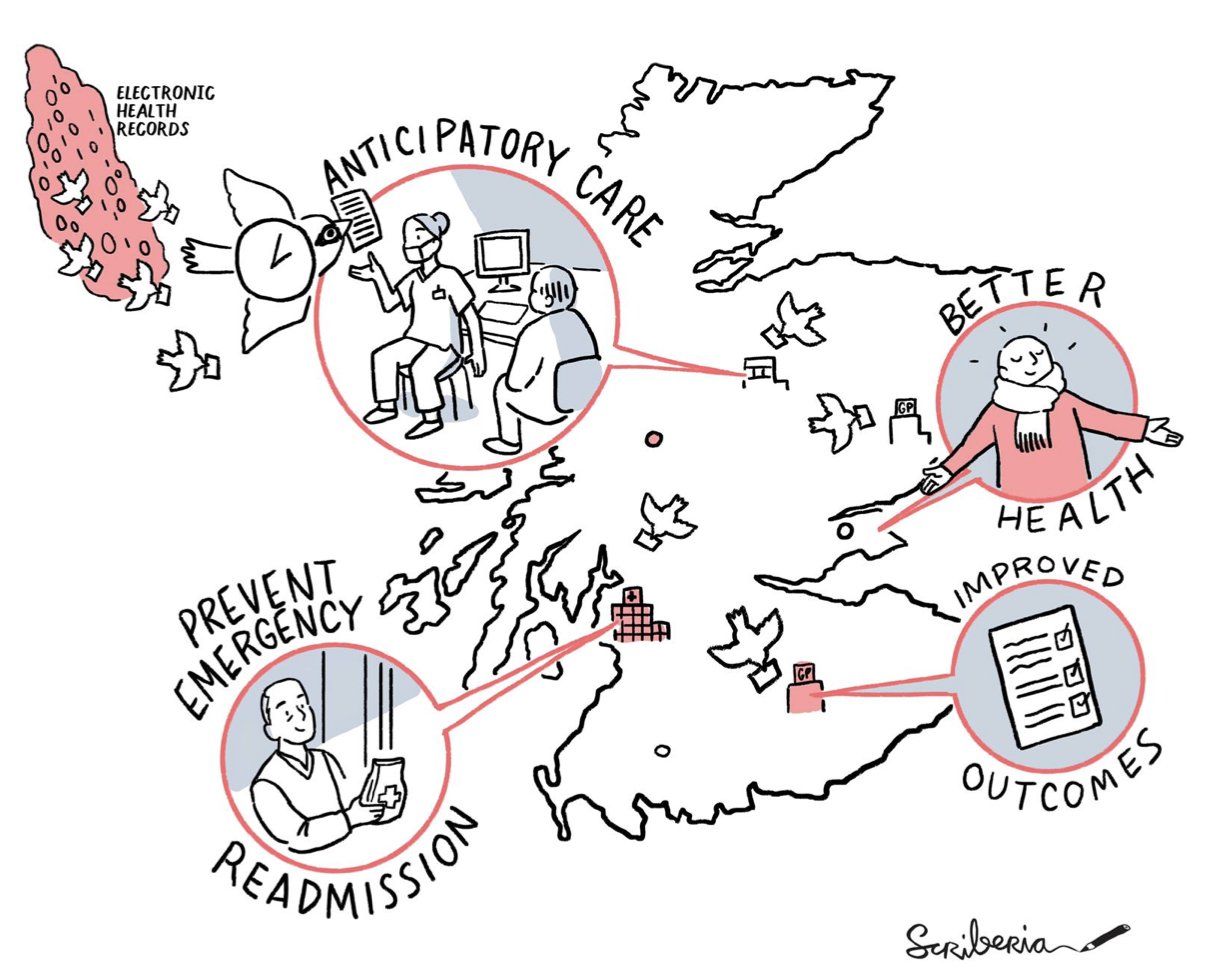 ELECTRONIC
HEALTH
RECORDS
ANTICIPATORY CARE
BETTER
HEALTH
GP
PREVENT
EMERGENCY
READMISSION
IMPROVED
OUTCOMES
GP
Scriberia